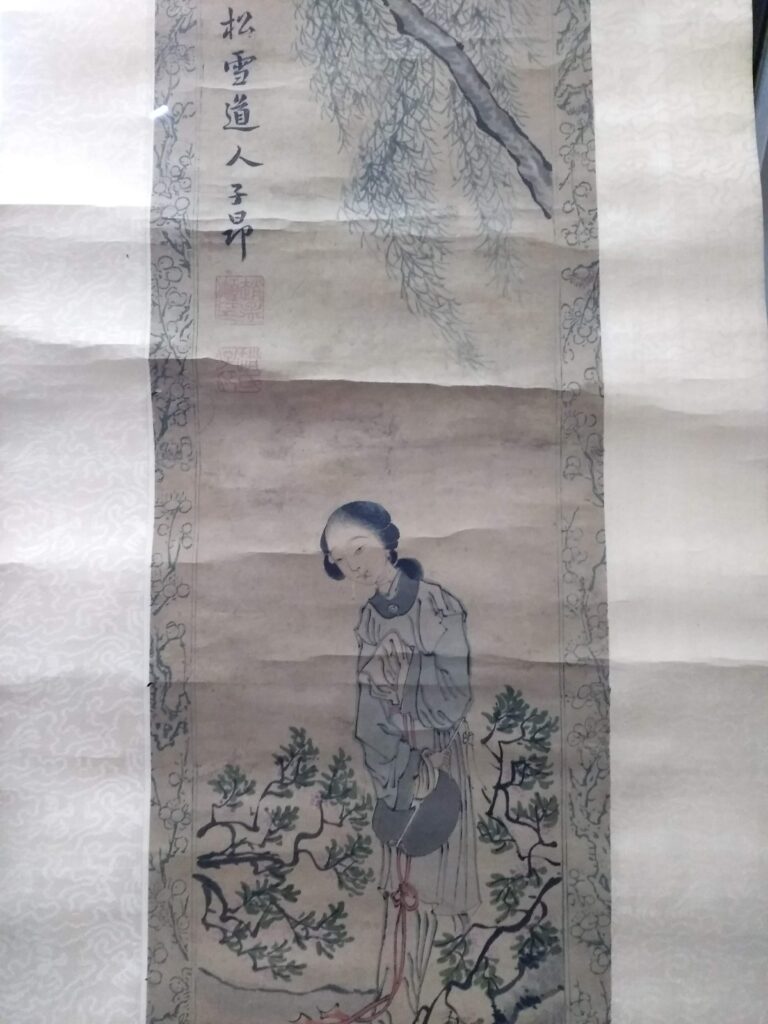 松雪道人子昂